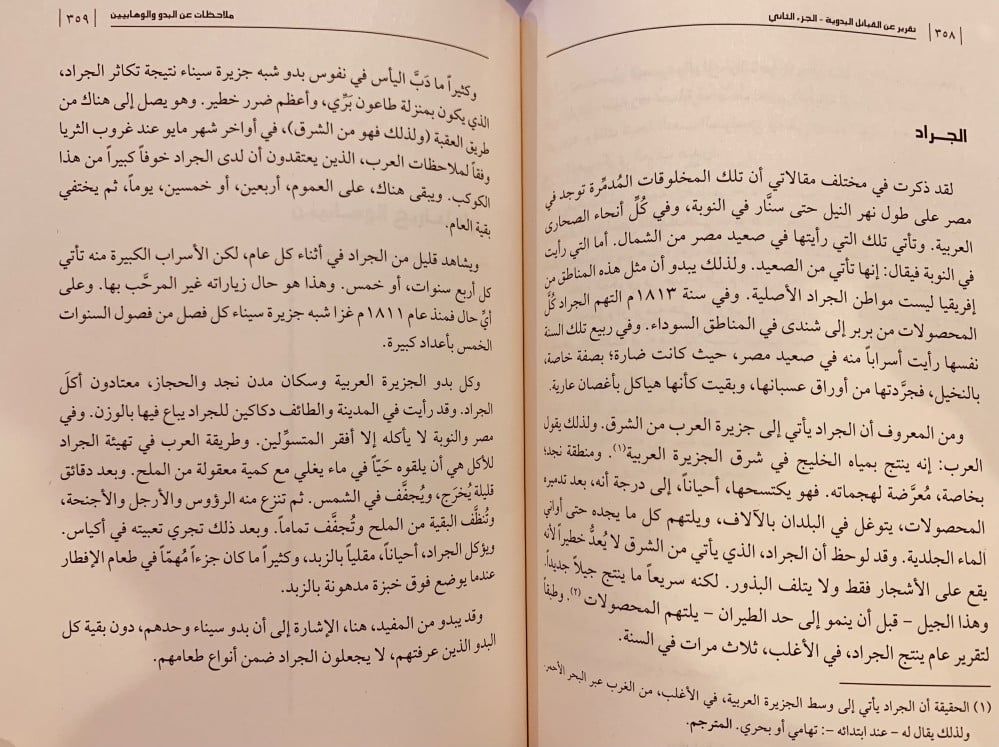 تقرير عن القبائل البدوية - الجزء الثاني
٣٥٨
الجراد
لقد ذكرت في مختلف مقالاتي أن تلك المخلوقات المُدمِّرة توجد في
مصر على طول نهر النيل حتى سنَّار في النوبة، وفي كُلِّ أنحاء الصحارى
العربية. وتأتي تلك التي رأيتها في صعيد مصر من الشمال. أما التي رأيت
في النوبة فيقال: إنها تأتي من الصعيد. ولذلك يبدو أن مثل هذه المناطق من
إفريقيا ليست مواطن الجراد الأصلية. وفي سنة ١٨١٣م التهم الجراد كُلَّ
المحصولات من بربر إلى شندى في المناطق السوداء. وفي ربيع تلك السنة
نفسها رأيت أسراباً منه في صعيد مصر، حيث كانت ضارة؛ بصفة خاصة،
بالنخيل، فجرَّدتها من أوراق عسبانها، وبقيت كأنها هياكل بأغصان عارية.
ومن المعروف أن الجراد يأتي إلى جزيرة العرب من الشرق. ولذلك يقول
العرب: إنه ينتج بمياه الخليج في شرق الجزيرة العربية(١). ومنطقة نجد؛
بخاصة، مُعرَّضة لهجماته. فهو يكتسحها، أحياناً، إلى درجة أنه، بعد تدميره
المحصولات، يتوغل في البلدان بالآلاف، ويلتهم كل ما يجده حتى أواني
الماء الجلدية. وقد لوحظ أن الجراد، الذي يأتي من الشرق لا يُعدُّ خطيراً لأنه
يقع على الأشجار فقط ولا يتلف البذور. لكنه سريعاً ما ينتج جيلاً جديداً.
وهذا الجيل - قبل أن ينمو إلى حد الطيران - يلتهم المحصولات(٢). وطبقاً
لتقرير عام ينتج الجراد، في الأغلب، ثلاث مرات في السنة.
(١) الحقيقة أن الجراد يأتي إلى وسط الجزيرة العربية، في الأغلب، من الغرب عبر البحر الأحمر.
ولذلك يقال له - عند ابتدائه -: تهامي أو بحري. المترجم.
ملاحظات عن البدو والوهابيين
٣٥٩
وكثيراً ما دَبَّ اليأس في نفوس بدو شبه جزيرة سيناء نتيجة تكاثر الجراد،
الذي يكون بمنزلة طاعون بَرِّي، وأعظم ضرر خطير. وهو يصل إلى هناك من
طريق العقبة (ولذلك فهو من الشرق)، في أواخر شهر مايو عند غروب الثريا
وفقاً لملاحظات العرب، الذين يعتقدون أن لدى الجراد خوفاً كبيراً من هذا
الكوكب. ويبقى هناك، على العموم، أربعين، أو خمسين، يوماً، ثم يختفي
بقية العام.
ويشاهد قليل من الجراد في أثناء كل عام، لكن الأسراب الكبيرة منه تأتي
كل أربع سنوات، أو خمس. وهذا هو حال زياراته غير المرحَّب بها. وعلى
أيِّ حال فمنذ عام ١٨١١م غزا شبه جزيرة سيناء كل فصل من فصول السنوات
الخمس بأعداد كبيرة.
وكل بدو الجزيرة العربية وسكان مدن نجد والحجاز، معتادون أكلَ
الجراد. وقد رأيت في المدينة والطائف دكاكين للجراد يباع فيها بالوزن. وفي
مصر والنوبة لا يأكله إلا أفقر المتسوِّلين. وطريقة العرب في تهيئة الجراد
للأكل هي أن يلقوه حَيّاً في ماء يغلي مع كمية معقولة من الملح. وبعد دقائق
قليلة يُخرَج، ويُجفَّف في الشمس. ثم تنزع منه الرؤوس والأرجل والأجنحة،
وتُنظَّف البقية من الملح وتُجفَّف تماماً. وبعد ذلك تجري تعبيته في أكياس.
ويؤكل الجراد، أحياناً، مقلياً بالزبد، وكثيراً ما كان جزءاً مُهمّاً في طعام الإفطار
عندما يوضع فوق خبزة مدهونة بالزبد.
وقد يبدو من المفيد، هنا، الإشارة إلى أن بدو سيناء وحدهم، دون بقية كل
البدو الذين عرفتهم، لا يجعلون الجراد ضمن أنواع طعامهم.